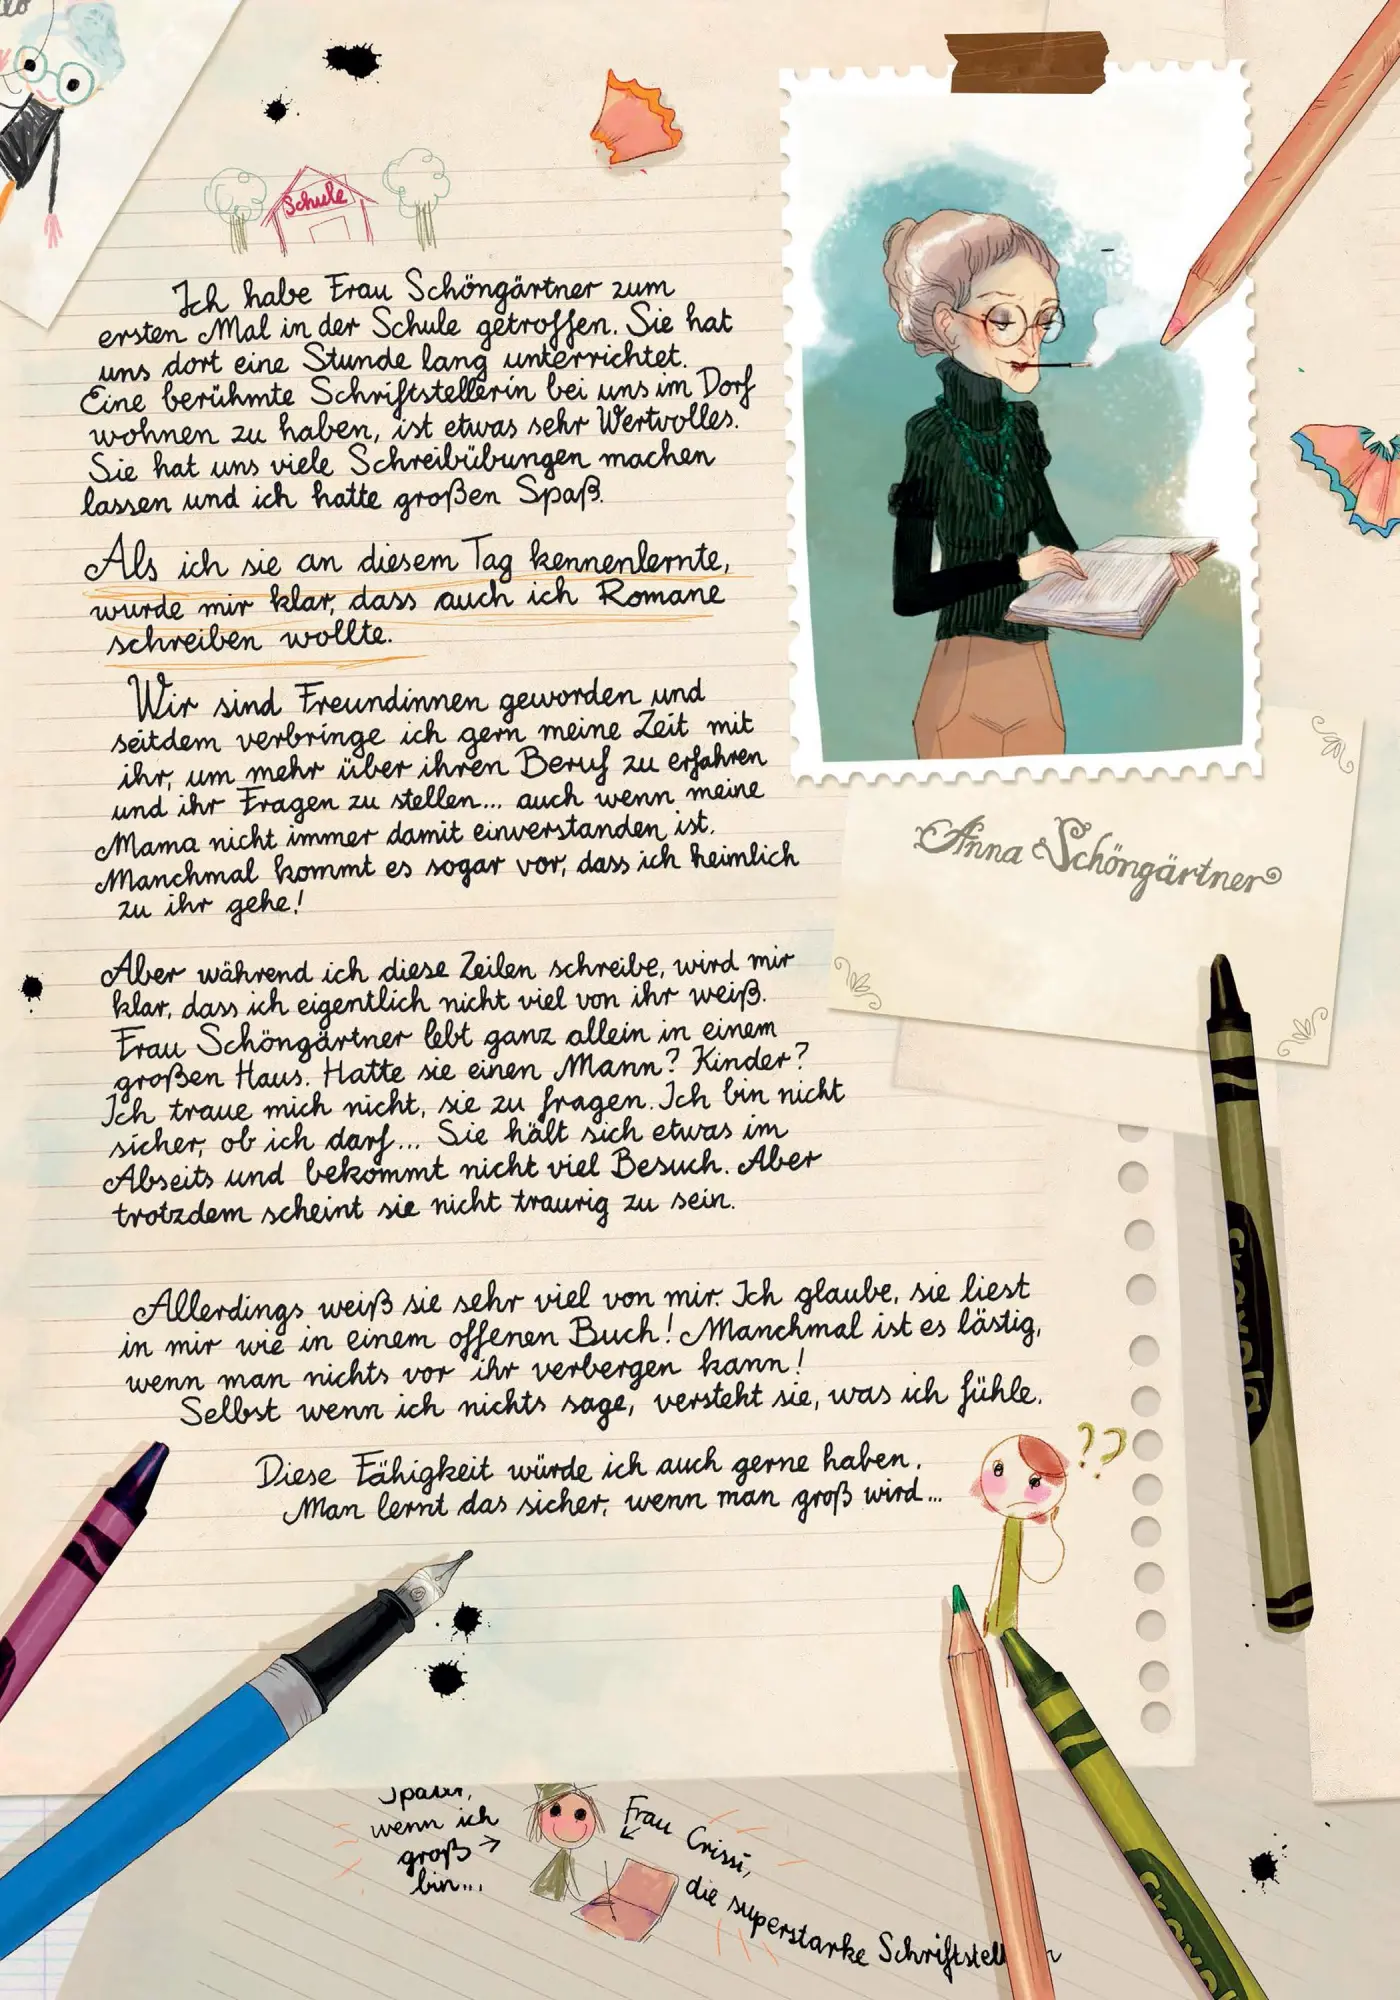 Schule
Ich habe Frau Schöngärtner zum
ersten Mal in der Schule getroffen. Sie hat
uns dort eine Stunde lang unterrichtet.
Eine berühmte Schriftstellerin bei uns im Dorf
wohnen zu haben, ist etwas sehr Wertvolles.
Sie hat uns viele Schreibübungen machen
lassen und ich hatte großen Spaß.
Als ich sie an diesem Tag kennenlernte,
wurde mir klar, dass auch ich Romane
schreiben wollte.
Wir sind Freundinnen geworden und
seitdem verbringe ich gern meine Zeit mit
ihr, um mehr über ihren Beruf zu erfahren
und ihr Fragen zu stellen... auch wenn meine
Mama nicht immer damit einverstanden ist.
Manchmal kommt es sogar vor, dass ich heimlich
zu ihr gehe!
Anna Schöngärtner
Aber während ich diese Zeilen schreibe, wird mir
klar, dass ich eigentlich nicht viel von ihr weiß.
Frau Schöngärtner lebt ganz allein in einem
großen Haus. Hatte sie einen Mann? Kinder?
Ich traue mich nicht, sie zu fragen. Ich bin nicht
sicher, ob ich darf... Sie hält sich etwas im
Abseits und bekommt nicht viel Besuch. Aber
trotzdem scheint sie nicht traurig zu sein.
Allerdings weiß sie sehr viel von mir. Ich glaube, sie liest
in mir wie in einem offenen Buch! Manchmal ist es lästig,
wenn man nichts vor ihr verbergen kann!
Selbst wenn ich nichts sage, versteht sie, was ich fühle.
Diese Fähigkeit würde ich auch gerne haben.
Man lernt das sicher, wenn man groß wird...
??
Crayola
Später,
wenn ich
groß →
bin...
Frau Crissi,
die superstarke